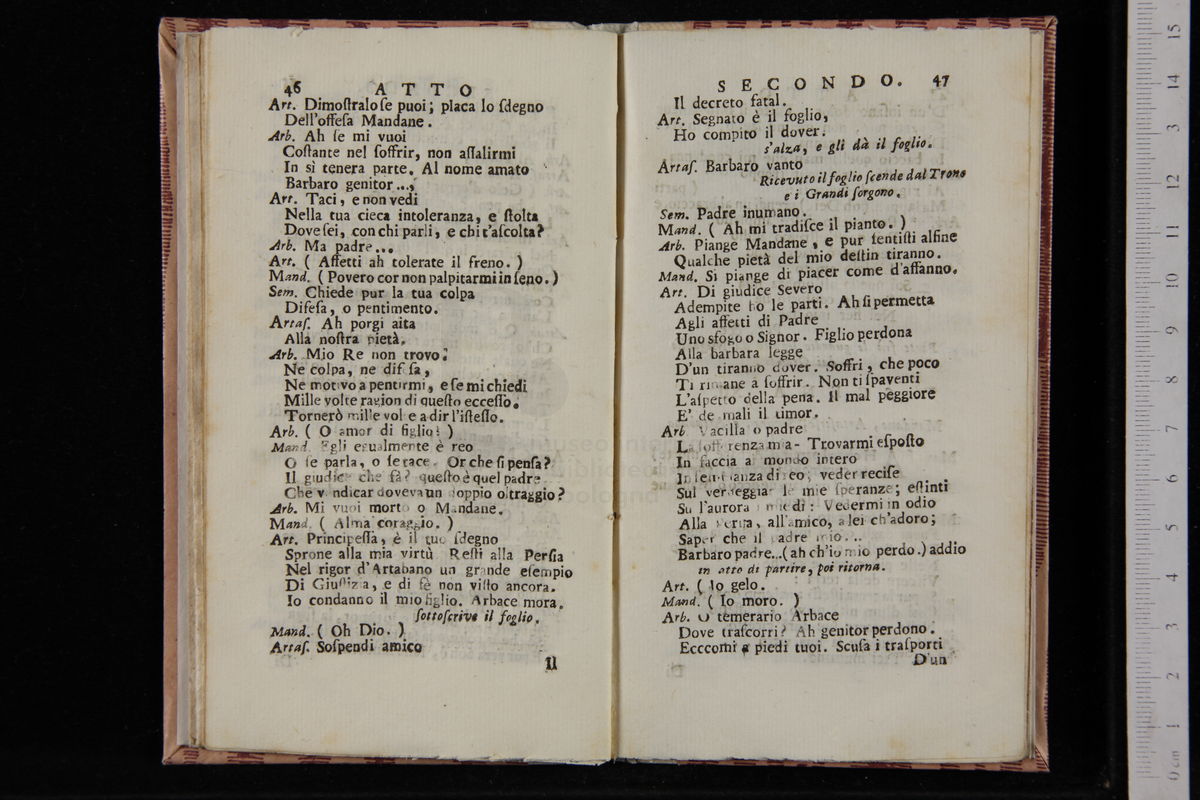 46 ATTO
Art. Dimoſtralo ſe puoi; placa lo ſdegno
Dell'offeſa Mandane.
Arb. Ah ſe mi vuoi
Coſtante nel ſoffrir, non aſſalirmi
In sì tenera parte. Al nome amato
Barbaro genitor...,
Art. Taci, e non vedi
Nella tua cieca intoleranza, e ſtolta
Dove ſei, con chi parli, e chi t'aſcolta?
Arb. Ma padre...
Art. ( Affetti ah tolerate il freno. )
Mand. ( Povero cor non palpitarmi in ſeno. )
Sem. Chiede pur la tua colpa
Difeſa, o pentimento.
Artaſ. Ah porgi aita
Alla noſtra pietà.
Arb. Mio Re non trovo!
Ne colpa, ne difeſa,
Ne motivo a pentirmi, e ſe mi chiedi
Mille volte ragion di queſto ecceſſo.
Tornerò mille volte a dir l'iſteſſo.
Arb. ( O amor di figlio! )
Mand. Egli egualmente è reo
O ſe parla, o ſe tace. Or che ſi penſa?
Il giudice che fà? queſto è quel padre
Che vendicar doveva un doppio oltraggio?
Arb. Mi vuoi morto o Mandane.
Mand. ( Alma coraggio. )
Art. Principeſſa, è il tuo ſdegno
Sprone alla mia virtù Reſti alla Perſia
Nel rigor d'Artabano un grande eſempio
Di Giuſtizia, e di fè non viſto ancora.
Io condanno il mio figlio. Arbace mora.
ſottoſcrive il foglio.
Mand. ( Oh Dio. )
Artaſ. Soſpendi amico
Il
SECONDO. 47
Il decreto fatal.
Art. Segnato è il foglio,
Ho compito il dover.
s'alza, e gli dà il foglio.
Artaſ. Barbaro vanto
Ricevuto il foglio ſcende dal Trono
e i Grandi ſorgono.
Sem. Padre inumano.
Mand. ( Ah mi tradiſce il pianto. )
Arb. Piange Mandane, e pur ſentiſti alfine
Qualche pietà del mio deſtin tiranno.
Mand. Si piange di piacer come d'affanno.
Art. Di giudice Severo
Adempite ho le parti. Ah ſi permetta
Agli affetti di Padre
Uno sfogo o Signor. Figlio perdona
Alla barbara legge
D'un tiranno dover. Soffri, che poco
Ti rimane a ſoffrir. Non ti ſpaventi
L'aſpetto della pena. Il mal peggiore
E' de mali il timor.
Arb Vacilla o padre
La ſofferenza mia- Trovarmi eſpoſto
In faccia al mondo intero
In ſembianza di reo; veder reciſe
Sul verdeggiar le mie ſperanze; eſtinti
Su l'aurora i miei dì: Vedermi in odio
Alla Perſia, all'amico, a lei ch'adoro;
Saper che il padre mio...
Barbaro padre...( ah ch'io mio perdo.) addio
in atto di partire, poi ritorna.
Art. ( Io gelo.
Mand. ( Io moro. )
Arb. O temerario Arbace
Dove traſcorri? Ah genitor perdono.
Ecccomi a piedi tuoi. Scuſa i traſporti
D'un